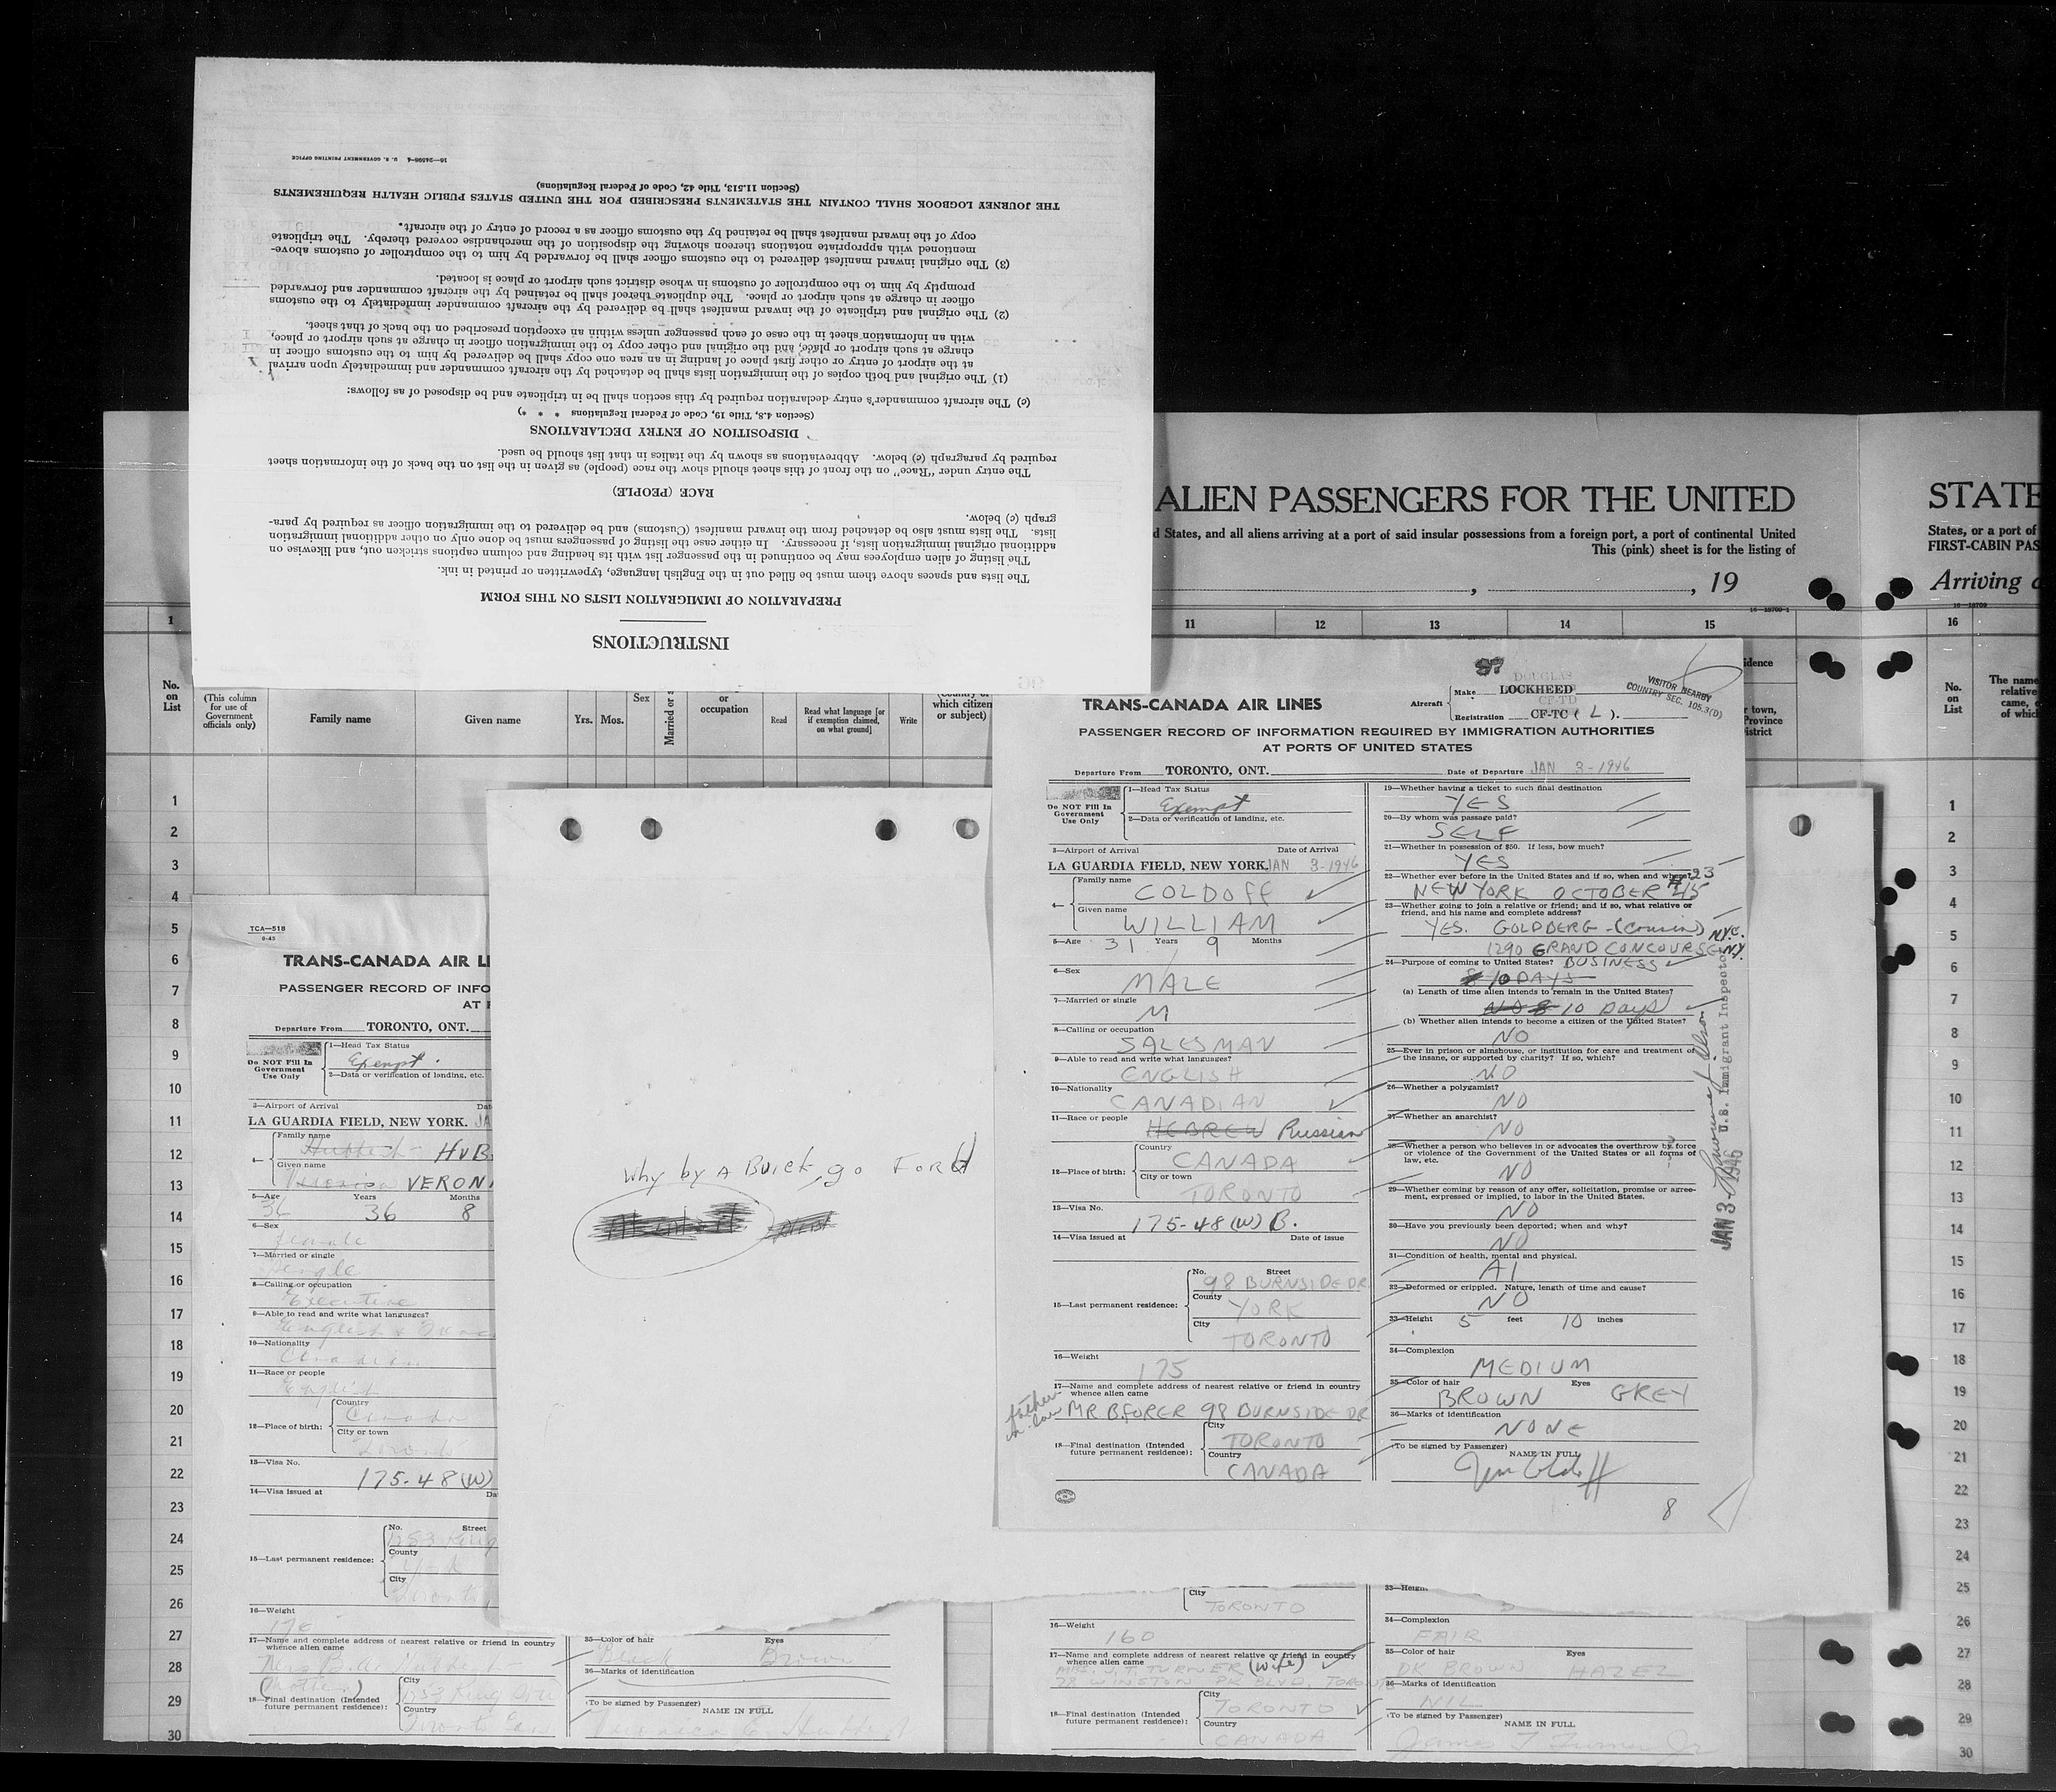 16—24596-4 U. S. GOVERNMENT PRINTING OFFICE
INSTRUCTIONS
PREPARATION OF IMMIGRATION LISTS ON THIS FORM
The lists and spaces above them must be filled out in the English language, typewritten or printed in ink.
The listing of alien employees may be continued in the passenger list with its heading and column captions stricken out, and likewise on
additional original immigration lists, if necessary. In either case the listing of passengers must be done only on other additional immigration
lists. The lists must also be detached from the inward manifest (Customs) and be delivered to the immigration officer as required by para-
graph (c) below.
RACE (PEOPLE)
The entry under "Race" on the front of this sheet should show the race (people) as given in the list on the back of the information sheet
required by paragraph (c) below. Abbreviations as shown by the italics in that list should be used.
DISPOSITION OF ENTRY DECLARATIONS
(Section 4.8, Title 19, Code of Federal Regulations * * *)
(c) The aircraft commander's entry declaration required by this section shall be in triplicate and be disposed of as follows:
(1) The original and both copies of the immigration lists shall be detached by the aircraft commander and immediately upon arrival
at the airport of entry or other first place of landing in an area one copy shall be delivered by him to the customs officer in
charge at such airport or place, and the original and other copy to the immigration officer in charge at such airport or place,
with an information sheet in the case of each passenger unless within an exception prescribed on the back of that sheet.
(2) The original and triplicate of the inward manifest shall be delivered by the aircraft commander immediately to the customs
officer in charge at such airport or place. The duplicate thereof shall be retained by the aircraft commander and forwarded
promptly by him to the comptroller of customs in whose district such airport or place is located.
(3) The original inward manifest delivered to the customs officer shall be forwarded by him to the comptroller of customs above-
mentioned with appropriate notations thereon showing the disposition of the merchandise covered thereby. The triplicate
copy of the inward manifest shall be retained by the customs officer as a record of entry of the aircraft.
THE JOURNEY LOGBOOK SHALL CONTAIN THE STATEMENTS PRESCRIBED FOR THE UNITED STATES PUBLIC HEALTH REQUIREMENTS
(Section 11.513, Title 42, Code of Federal Regulations)
ALIEN PASSENGERS FOR THE UNITED
d States, and all aliens arriving at a port of said insular possessions from a foreign port, a port of continental United
This (pink) sheet is for the listing of
, , 19
STATE
States, or a port of
FIRST-CABIN PAS
Arriving
1 11 12 13 14 15 16
No. on List
(This column for use of Government officials only)
Family name
Given name
Yrs. Mos.
Sex
Married or s
or occupation
Read
Read what language [or if exemption claimed, on what ground]
Write
which citizen or subject)
No. on List
The name
relative
came,
of which
TCA—518
9-45
TRANS-CANADA AIR LI
PASSENGER RECORD OF INFO
AT
Departure From TORONTO, ONT.
Do NOT Fill In Government Use Only
1—Head Tax Status
Exempt
2—Data or verification of landing, etc.
3—Airport of Arrival
LA GUARDIA FIELD, NEW YORK. JA
Family name
HUB
Given name
VERON
5—Age Years Months
36 36 8
6—Sex
female
7—Married or single
Single
8—Calling or occupation
Executive
9—Able to read and write what languages?
10—Nationality
Canadian
11—Race or people
English
12—Place of birth:
Country
Canada
City or town
Toronto
13—Visa No.
175-48(W)
14—Visa issued at
15—Last permanent residence:
No. Street
County
York
City
16—Weight
17—Name and complete address of nearest relative or friend in country
whence alien came
(Mother)
18—Final destination (Intended future permanent residence):
City
Country
35—Color of hair Eyes
Black Brown
36—Marks of identification
(To be signed by Passenger) NAME IN FULL
Why by A Buick, go Ford
TRANS-CANADA AIR LINES
97
Aircraft
DOUGLAS
Make LOCKHEED
CF-TD
Registration CF-TC ( L ).
VISITOR NEARBY
COUNTRY SEC. 105.3(D)
PASSENGER RECORD OF INFORMATION REQUIRED BY IMMIGRATION AUTHORITIES
AT PORTS OF UNITED STATES
Departure From TORONTO, ONT. Date of Departure JAN 3-1946
Do NOT Fill In Government Use Only
1—Head Tax Status
Exempt
2—Data or verification of landing, etc.
3—Airport of Arrival Date of Arrival
LA GUARDIA FIELD, NEW YORK. JAN 3-1946
4—
Family name
COLDOFF
Given name
WILLIAM
5—Age 31 Years 9 Months
6—Sex
MALE
7—Married or single
M
8—Calling or occupation
SALESMAN
9—Able to read and write what languages?
ENGLISH
10—Nationality
CANADIAN
11—Race or people
HEBREW Russian
12—Place of birth:
Country
CANADA
City or town
TORONTO
13—Visa No.
175-48(W) B.
14—Visa issued at Date of issue
15—Last permanent residence:
No. Street
98 BURNSIDE DR
County
YORK
City
TORONTO
16—Weight
175
17—Name and complete address of nearest relative or friend in country
whence alien came
father in-law
MR B.FORER 98 BURNSIDE DR
18—Final destination (Intended future permanent residence):
City
TORONTO
Country
CANADA
19—Whether having a ticket to such final destination
YES
20—By whom was passage paid?
SELF
21—Whether in possession of $50. If less, how much?
YES
22—Whether ever before in the United States and if so, when and where?
NEW YORK OCTOBER 23 45
23—Whether going to join a relative or friend; and if so, what relative or
friend, and his name and complete address?
YES. GOLDBERG -(cousin) NYC.
1290 GRAND CONCOURSE NY.
24—Purpose of coming to United States? BUSINESS
10 DAYS
(a) Length of time alien intends to remain in the United States?
10 Days
(b) Whether alien intends to become a citizen of the United States?
NO
25—Ever in prison or almshouse, or institution for care and treatment of
the insane, or supported by charity? If so, which?
NO
26—Whether a polygamist?
NO
27—Whether an anarchist?
NO
28—Whether a person who believes in or advocates the overthrow by force
or violence of the Government of the United States or all forms of
law, etc.
NO
29—Whether coming by reason of any offer, solicitation, promise or agree-
ment, expressed or implied, to labor in the United States.
NO
30—Have you previously been deported; when and why?
NO
31—Condition of health, mental and physical.
A1
32—Deformed or crippled. Nature, length of time and cause?
NO
33—Height 5 feet 10 inches
34—Complexion
MEDIUM
35—Color of hair Eyes
BROWN GREY
36—Marks of identification
NONE
(To be signed by Passenger) NAME IN FULL
8
JAN 3-1946
U.S. Immigrant Inspector
City
TORONTO
16—Weight
160
17—Name and complete address of nearest relative or friend in country
whence alien came
MRS. J. T. TURNER (wife)
78 WINSTON PK BLVD. TORONTO
18—Final destination (Intended future permanent residence):
City
TORONTO
Country
CANADA
33—Height
34—Complexion
FAIR
35—Color of hair Eyes
DK BROWN HAZEL
36—Marks of identification
NIL
(To be signed by Passenger) NAME IN FULL
James T Turner Jr